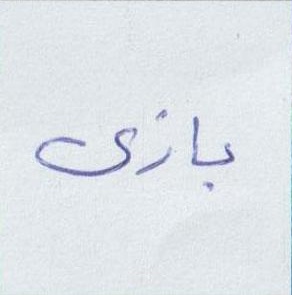 بازی